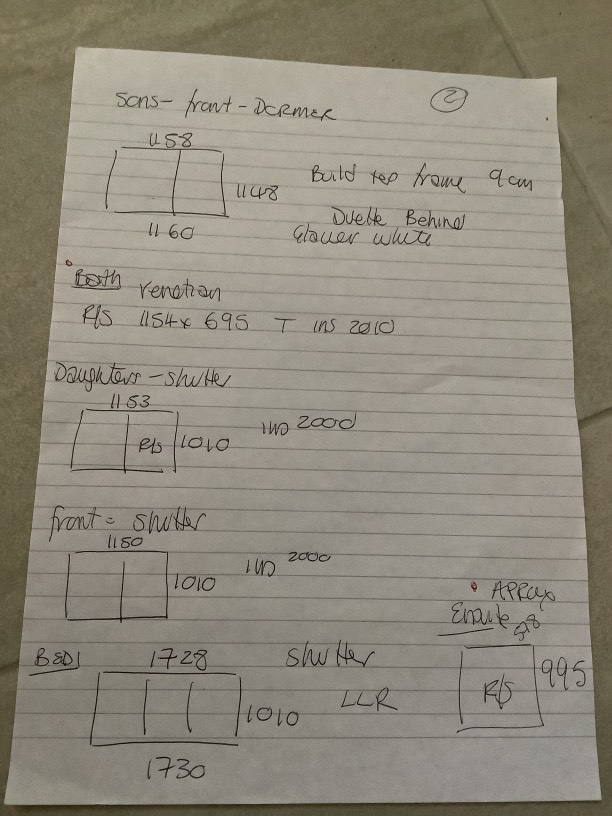 sons - front - DORMER
2
1158
1148
1160
Build top frame 9cm
Duette Behind
white
Both Venetian
R/S 1154 x 695 T ins 2010
Daughters - shutter
1153
R/S
1010
2000
front = shutter
1150
1010
2000
APPROX
Ensuite
BED1
1728
shutter
518
1010
LLR
R/S
995
1730